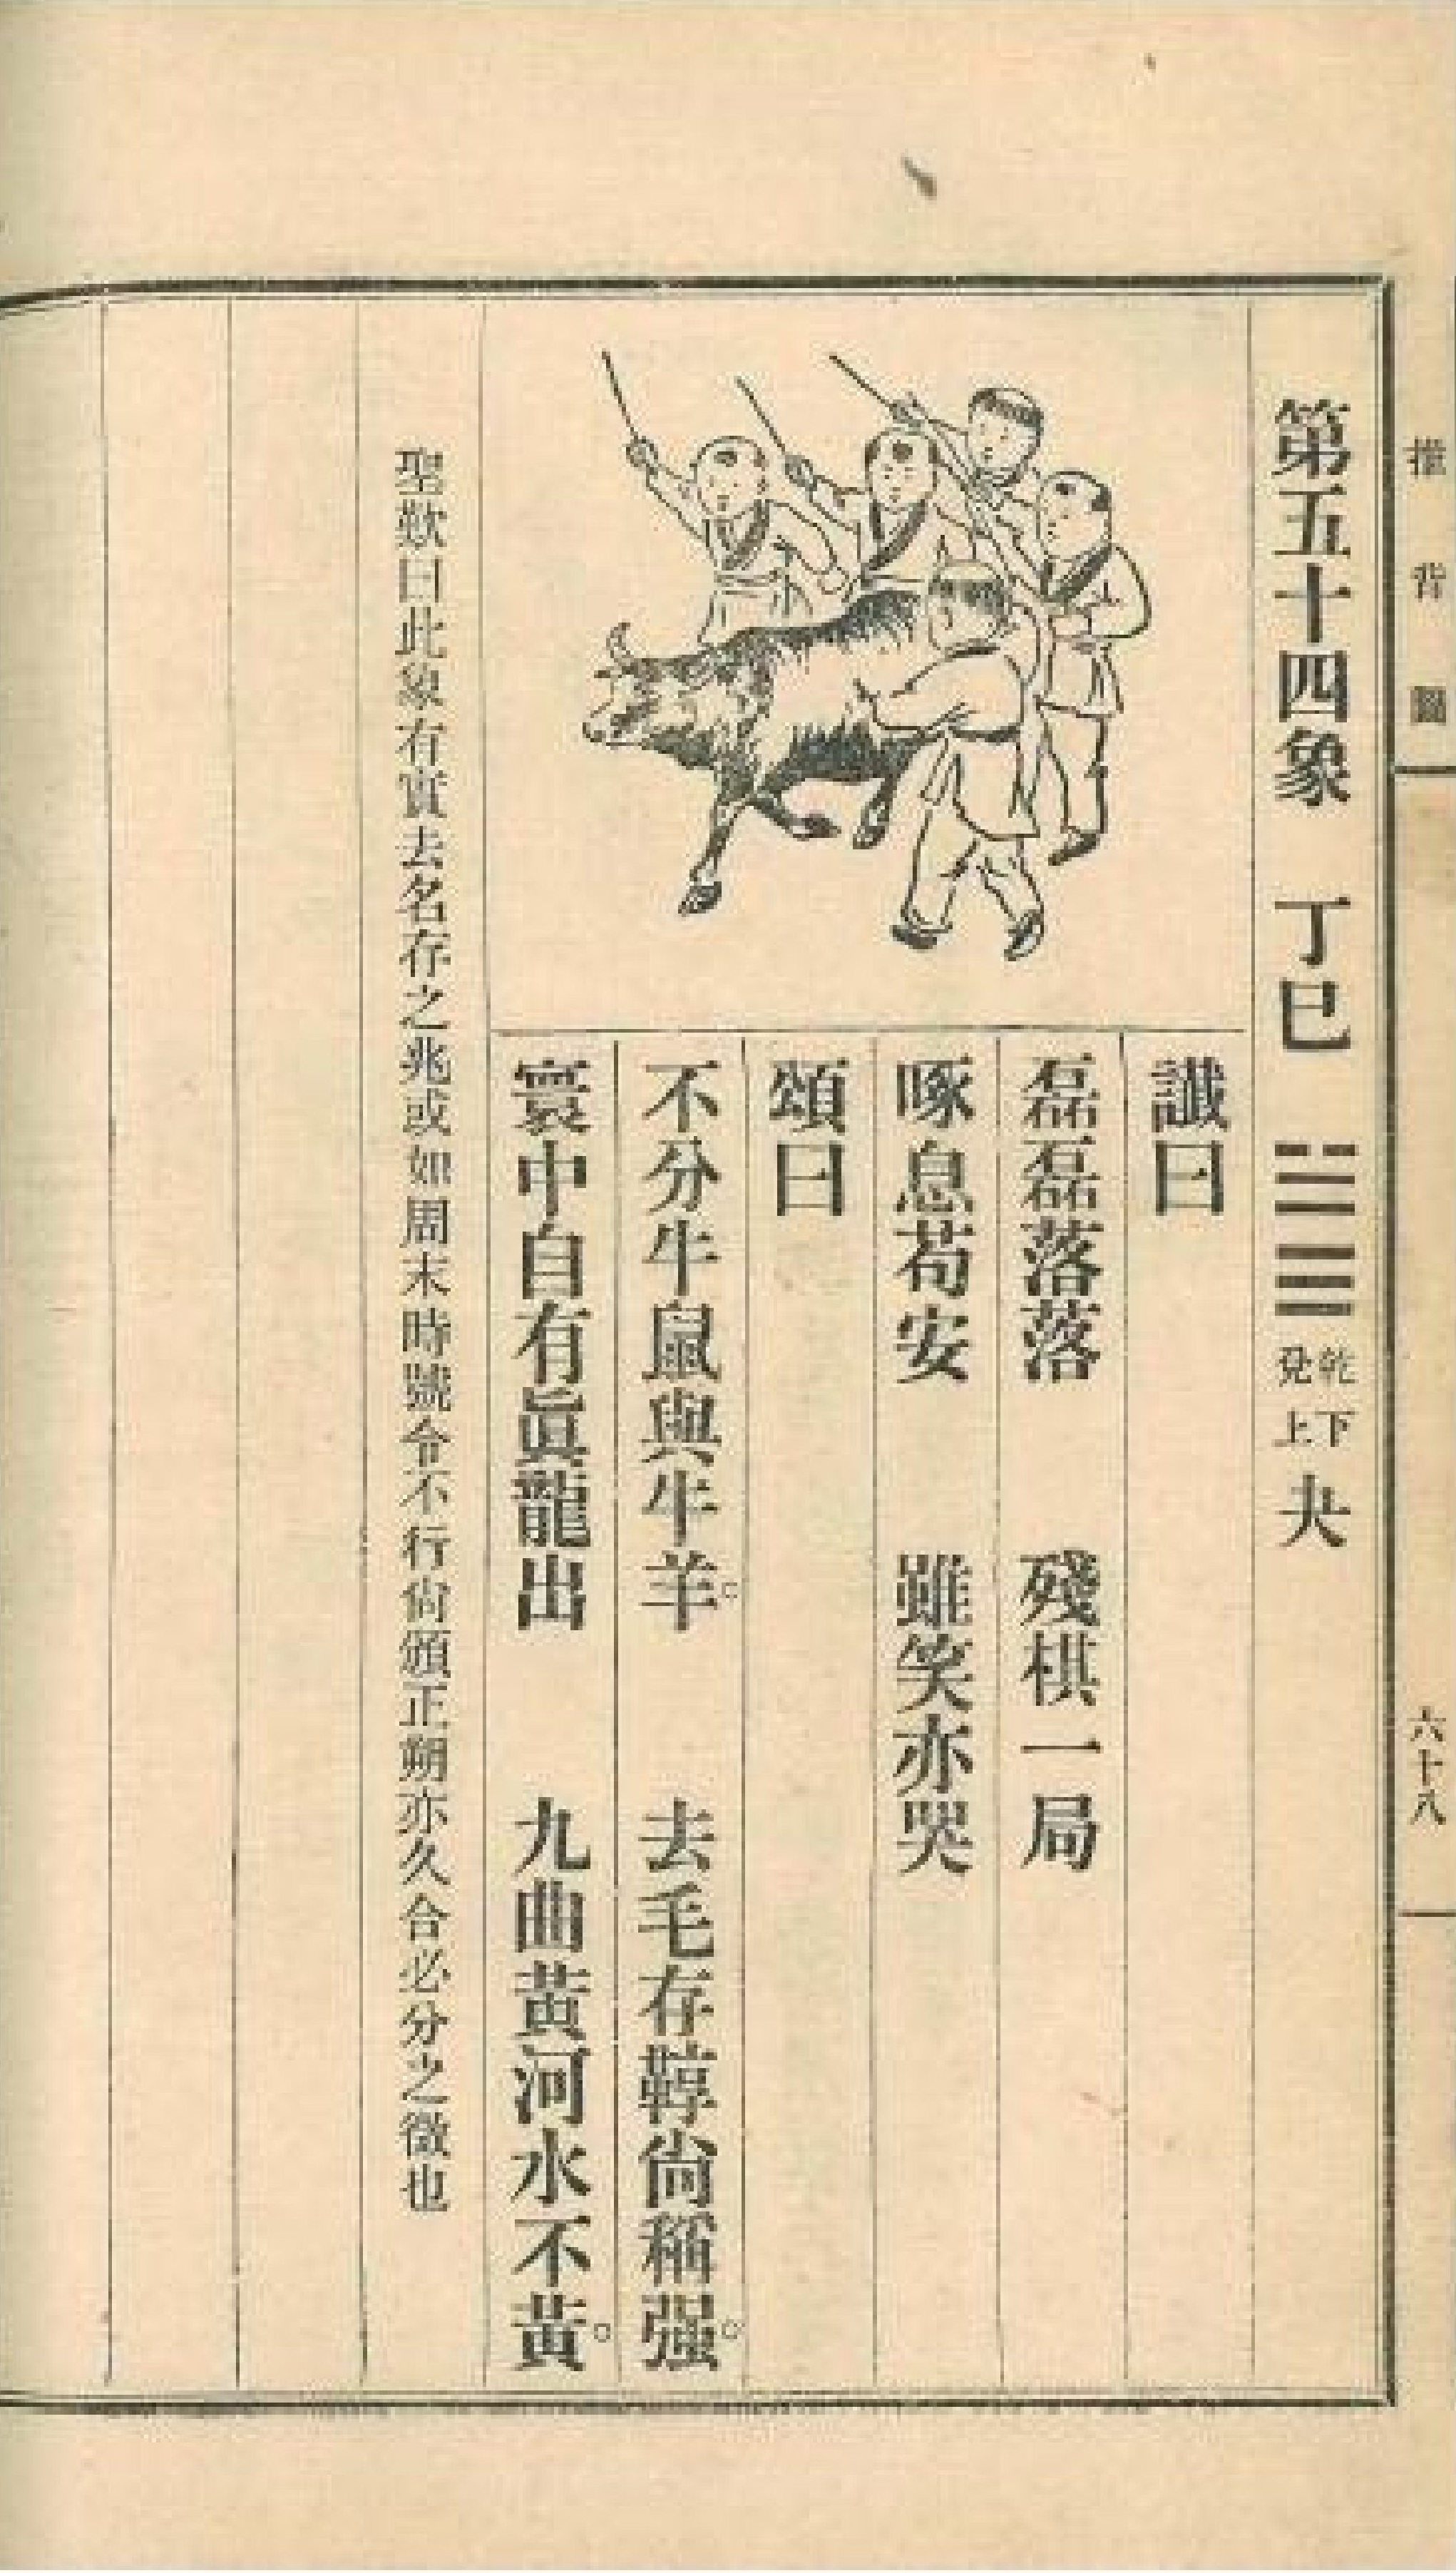 推背圖
六十八
第五十四象 丁巳 乾下兌上 夬
讖曰
磊磊落落 殘棋一局
啄息苟安 雖笑亦哭
頌曰
不分牛鼠與牛羊。 去毛存鞟尙稱强。
寰中自有眞龍出 九曲黃河水不黃。
聖歎曰此象有實去名存之兆或如周末時號令不行尙頒正朔亦久合必分之徵也